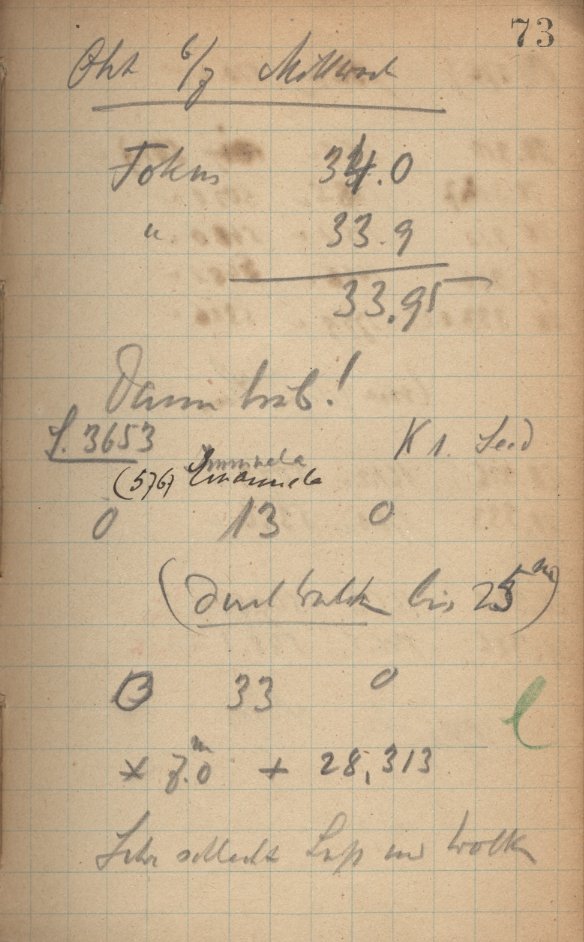 73
Okt 6/7 Mittwoch
Fokus 34.0
" 33.9
33.95
Dann trüb!
P. 3653 K 1. Seed
Emanuela
(576) Emanuela
0 13 0
(durch Wolken bis 25ᵐ)
0 33 0
* 7.0ᵐ + 28,313
Sehr schlecht Luft und Wolken